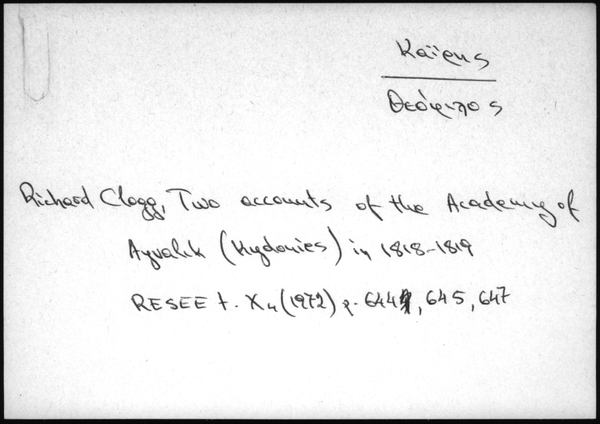 Καΐρης
Θεόφιλος
Richard Clogg, Two accounts of the Academy of
Ayvalık (Kydonies) in 1818-1819
RESEE t. X4 (1972) p. 644, 645, 647